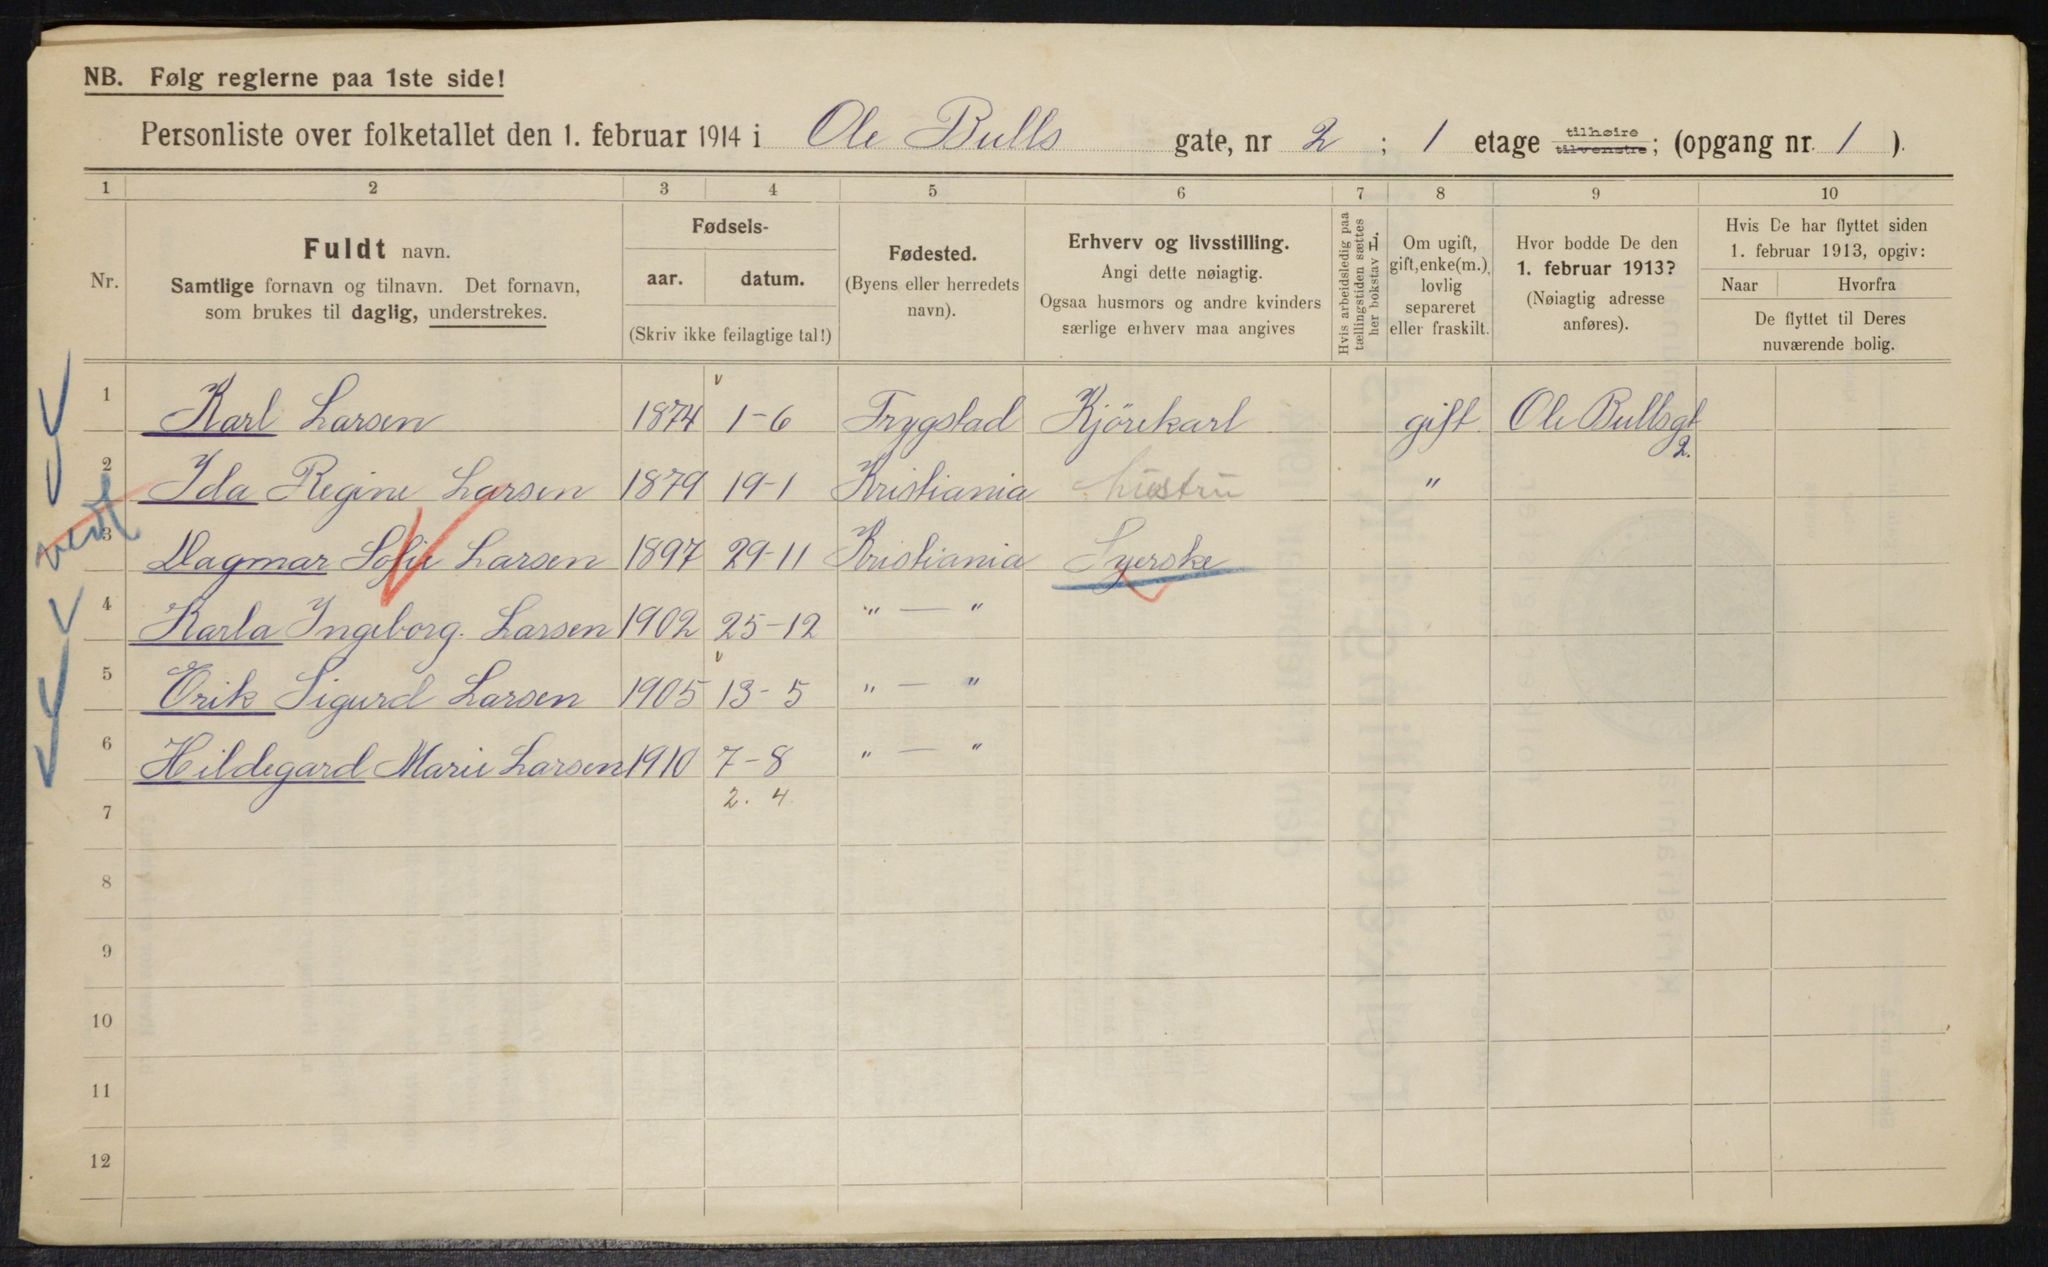 NB. Følg reglerne paa 1ste side!
Personliste over folketallet den 1. februar 1914 i Ole Bulls gate, nr 2 ; 1 etage tilhøire tilvenstre; (opgang nr. 1 ).
1 2 3 4 5 6 7 8 9 10
Nr.
Fuldt navn.
Samtlige fornavn og tilnavn. Det fornavn,
som brukes til daglig, understrekes.
Fødsels-
aar. datum.
(Skriv ikke feilagtige tal!)
Fødested.
(Byens eller herredets
navn).
Erhverv og livsstilling.
Angi dette nøiagtig.
Ogsaa husmors og andre kvinders
særlige erhverv maa angives
Hvis arbeidsledig paa
tællingstiden sættes
her bokstav L.
Om ugift,
gift, enke(m.),
lovlig
separeret
eller fraskilt.
Hvor bodde De den
1. februar 1913?
(Nøiagtig adresse
anføres).
Hvis De har flyttet siden
1. februar 1913, opgiv:
Naar Hvorfra
De flyttet til Deres
nuværende bolig.
1 Karl Larsen 1874 1-6 Trygstad Kjörekarl gift Ole Bullsgt
2.
2 Ida Regine Larsen 1879 19-1 Kristiania hustru "
3 Dagmar Sofie Larsen 1897 29-11 Kristiania Syerske
4 Karla Ingeborg. Larsen 1902 25-12 " — "
5 Erik Sigurd Larsen 1905 13-5 " — "
6 Hildegard Marie Larsen 1910 7-8 " — "
7 2. 4.
8
9
10
11
12